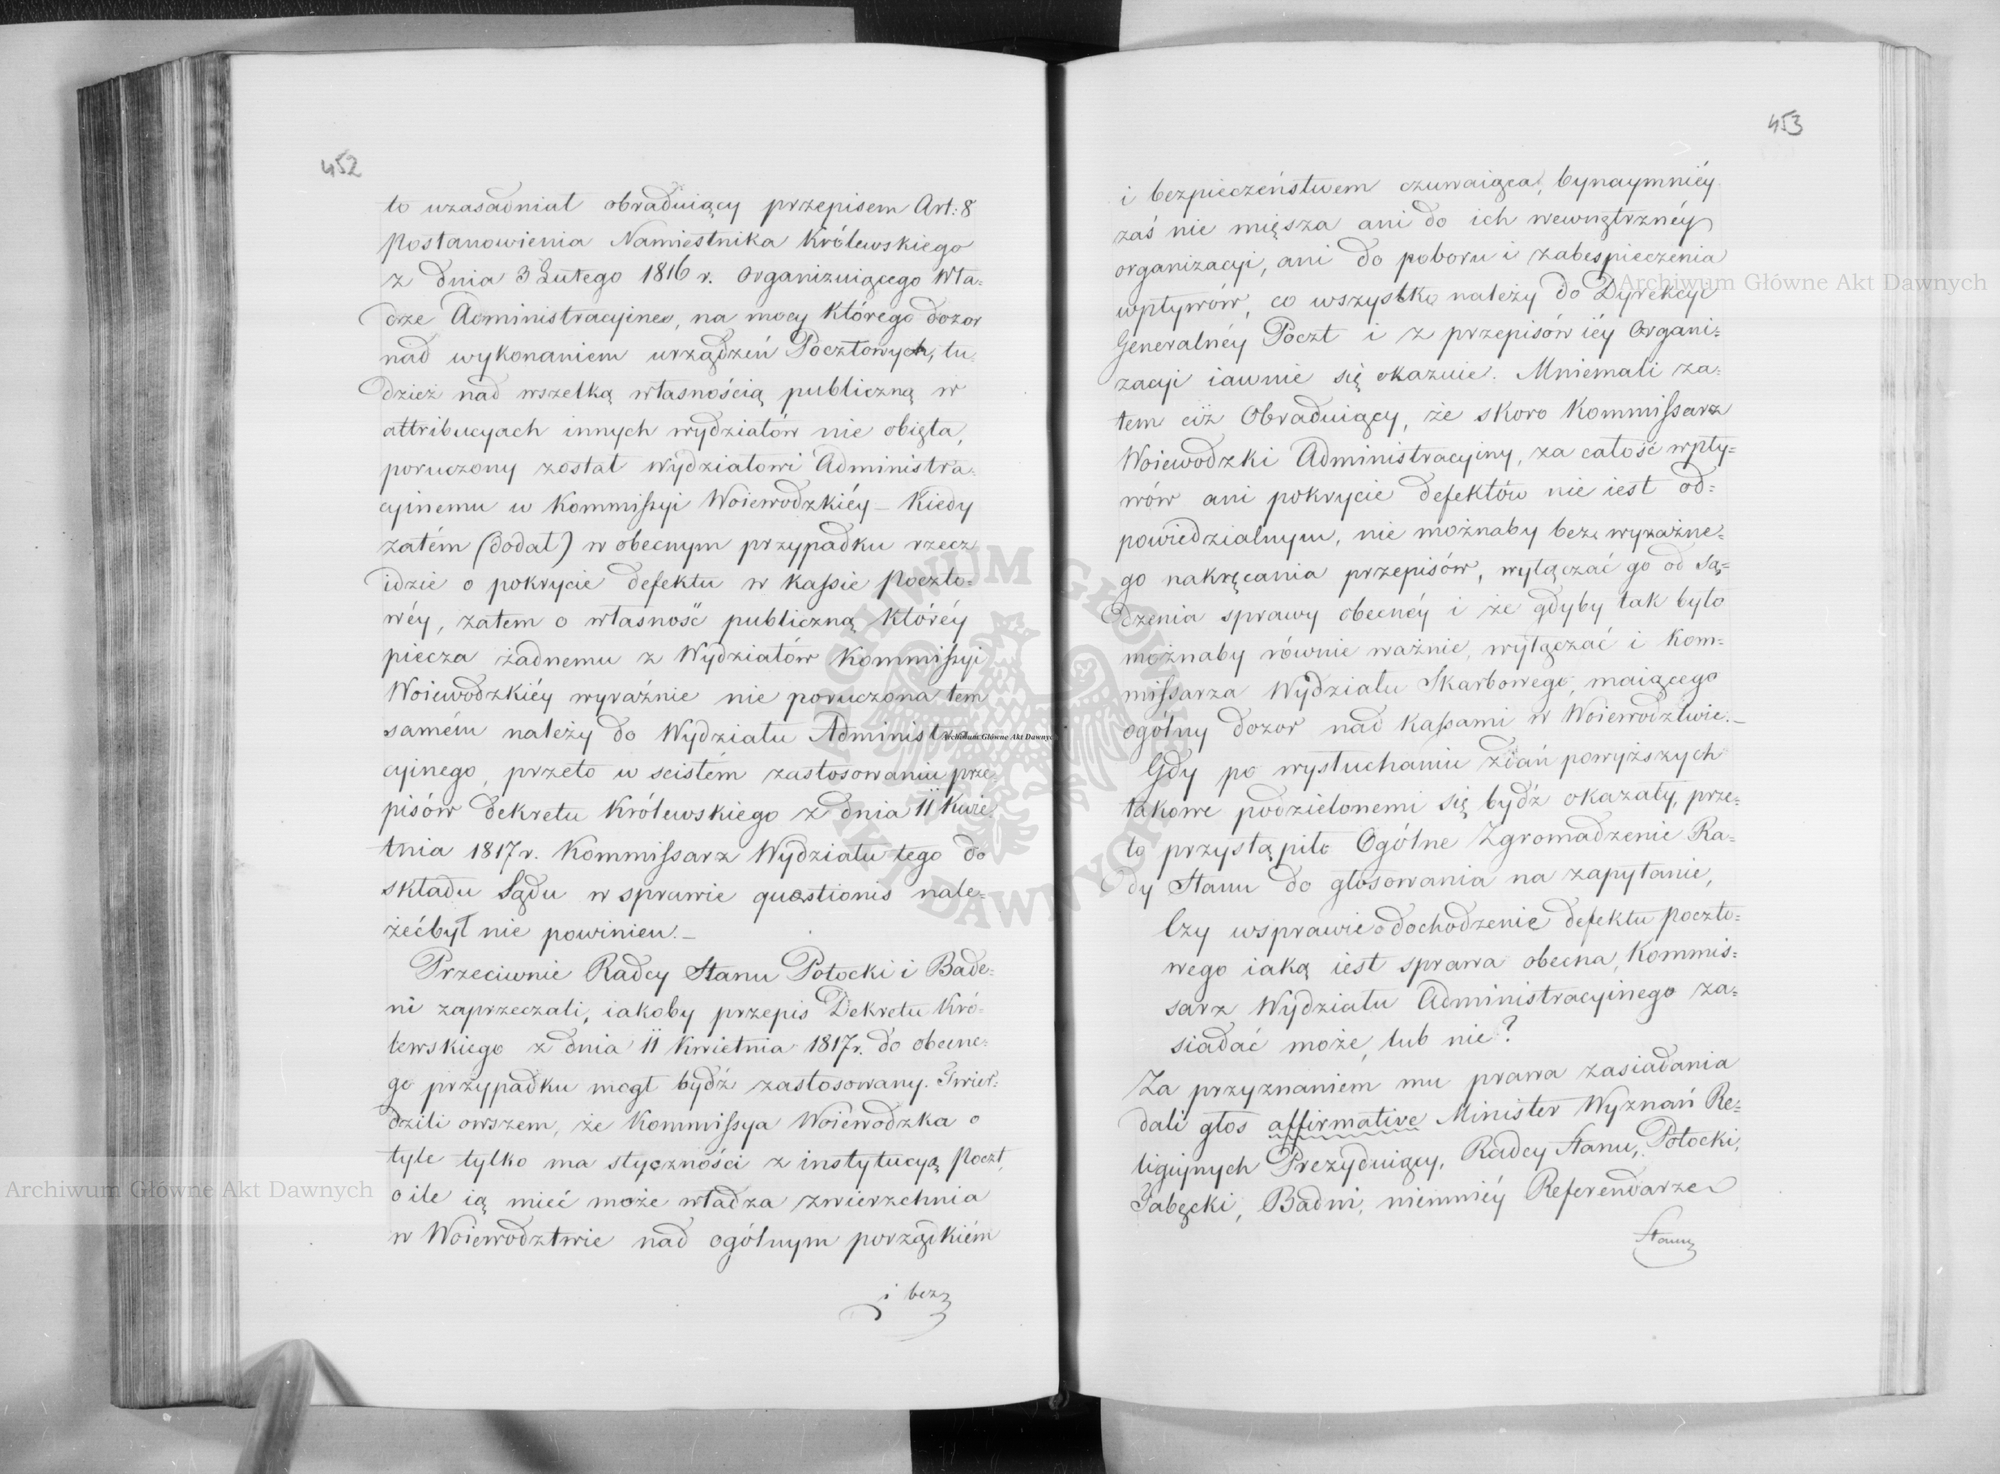 452
to uzasadniał obraduiący przepisem Art: 8
Postanowienia Namiestnika Królewskiego
z dnia 3 Lutego 1816 r. organizuiącego Wła-
dze Administracyine, na mocy którego dozor
nad wykonaniem urządzeń Pocztowych, tu-
dzież nad wszelką własnością publiczną w
attribucyach innych wydziałów nie obięta,
poruczony został Wydziałowi Administra-
cyinemu w Kommissyi Woiewodzkiéy – Kiedy
zatém (dodał) w obecnym przypadku rzecz
idzie o pokrycie defektu w kassie Poczto-
wéy, zatem o własność publiczną któréy
piecza żadnemu z Wydziałów Kommissyi
Woiewodzkiéy wyraźnie nie poruczona tem
samém należy do Wydziału Administra-
cyinego, przeto w scisłém zastosowaniu prze-
pisów dekretu Królewskiego z dnia 11 Kwie-
tnia 1817 r. Kommissarz Wydziału tego do
składu Sądu w sprawie quæstionis nale-
żéćbył nie powinien. –
Przeciwnie Radcy Stanu Potocki i Bade-
ni zaprzeczali, iakoby przepis Dekretu Kró-
lewskiego z dnia 11 Kwietnia 1817 r. do obecne-
go przypadku mogł bydź zastosowany. Twier-
dzili owszem, że Kommissya Woiewodzka o
tyle tylko ma styczności z instytucyą Poczt,
o ile ią mieć może władza zwierzchnia
w Woiewodztwie nad ogólnym porządkiém
i bez
453
i bezpieczeństwem czuwaiąca, bynaymniéy
zaś nie mięsza ani do ich wewnątrznéy
organizacyi, ani do poboru i zabespieczenia
wpływów, co wszystko należy do Dyrekcyi
Generalnéy Poczt i z przepisów iéy Organi-
zacyi iawnie się okazuie. Mniemali za-
tem ciż Obraduiący, że skoro Kommissarz
Woiewodzki Administracyiny, za całość wpły-
wów ani pokrycie defektów nie iest od-
powiedzialnym, nie możnaby bez wyraźne-
go nakręcania przepisów, wyłączać go od są-
dzenia sprawy obecnéy i że gdyby tak było
możnaby równie ważnie, wyłączać i Kom-
missarza Wydziału Skarbowego, maiącego
ogólny dozor nad kassami w Woiewodztwie. –
Gdy po wysłuchaniu zdań powyższych
takowe podzielonemi się bydź okazały, prze-
to przystąpiło Ogólne Zgromadzenie Ra-
dy Stanu do głosowania na zapytanie,
Czy wsprawie o dochodzenie defektu poczto-
wego iaką iest sprawa obecna, Kommis-
sarz Wydziału Administracyinego za-
siadać może, lub nie?
Za przyznaniem mu prawa zasiadania
dali głos affirmative Minister Wyznań Re-
ligijnych Prezyduiący, Radcy Stanu, Potocki,
Badni, niemniéy Referendarze
Stanu
Archiwum Główne Akt Dawnych
Archiwum Główne Akt Dawnych
Archiwum Główne Akt Dawnych
ARCHIWUM GŁÓWNE
AKT DAWNYCH